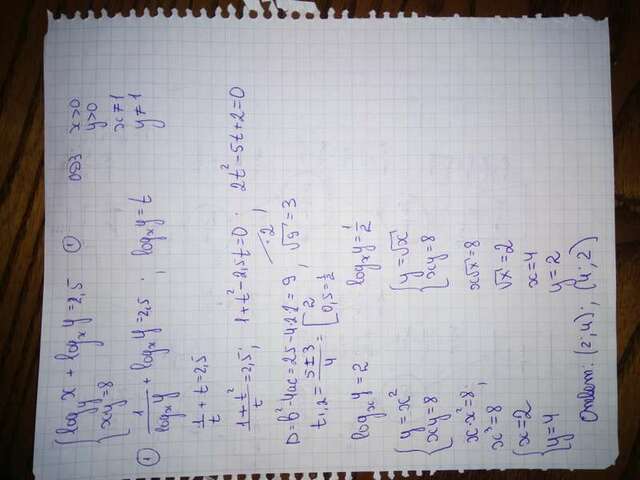 { log_y x + log_x y = 2,5 ① ОДЗ x>0
xy=8 y>0
x≠1
y≠1
① 1/log_x y + log_x y = 2,5 ; log_x y = t
1/t + t = 2,5
(1+t²)/t = 2,5; 1+t²-2,5t=0 /·2, 2t²-5t+2=0
D=b²-4ac=25-4·2·2=9, √9=3
t₁,₂ = (5±3)/4 = [2
0,5=1/2
log_x y=2 log_x y=1/2
{ y=x² { y=√x
xy=8 xy=8
x·x²=8, x√x=8
x³=8 √x=2
{ x=2 x=4
y=4 y=2
Ответ: (2;4); (4;2)